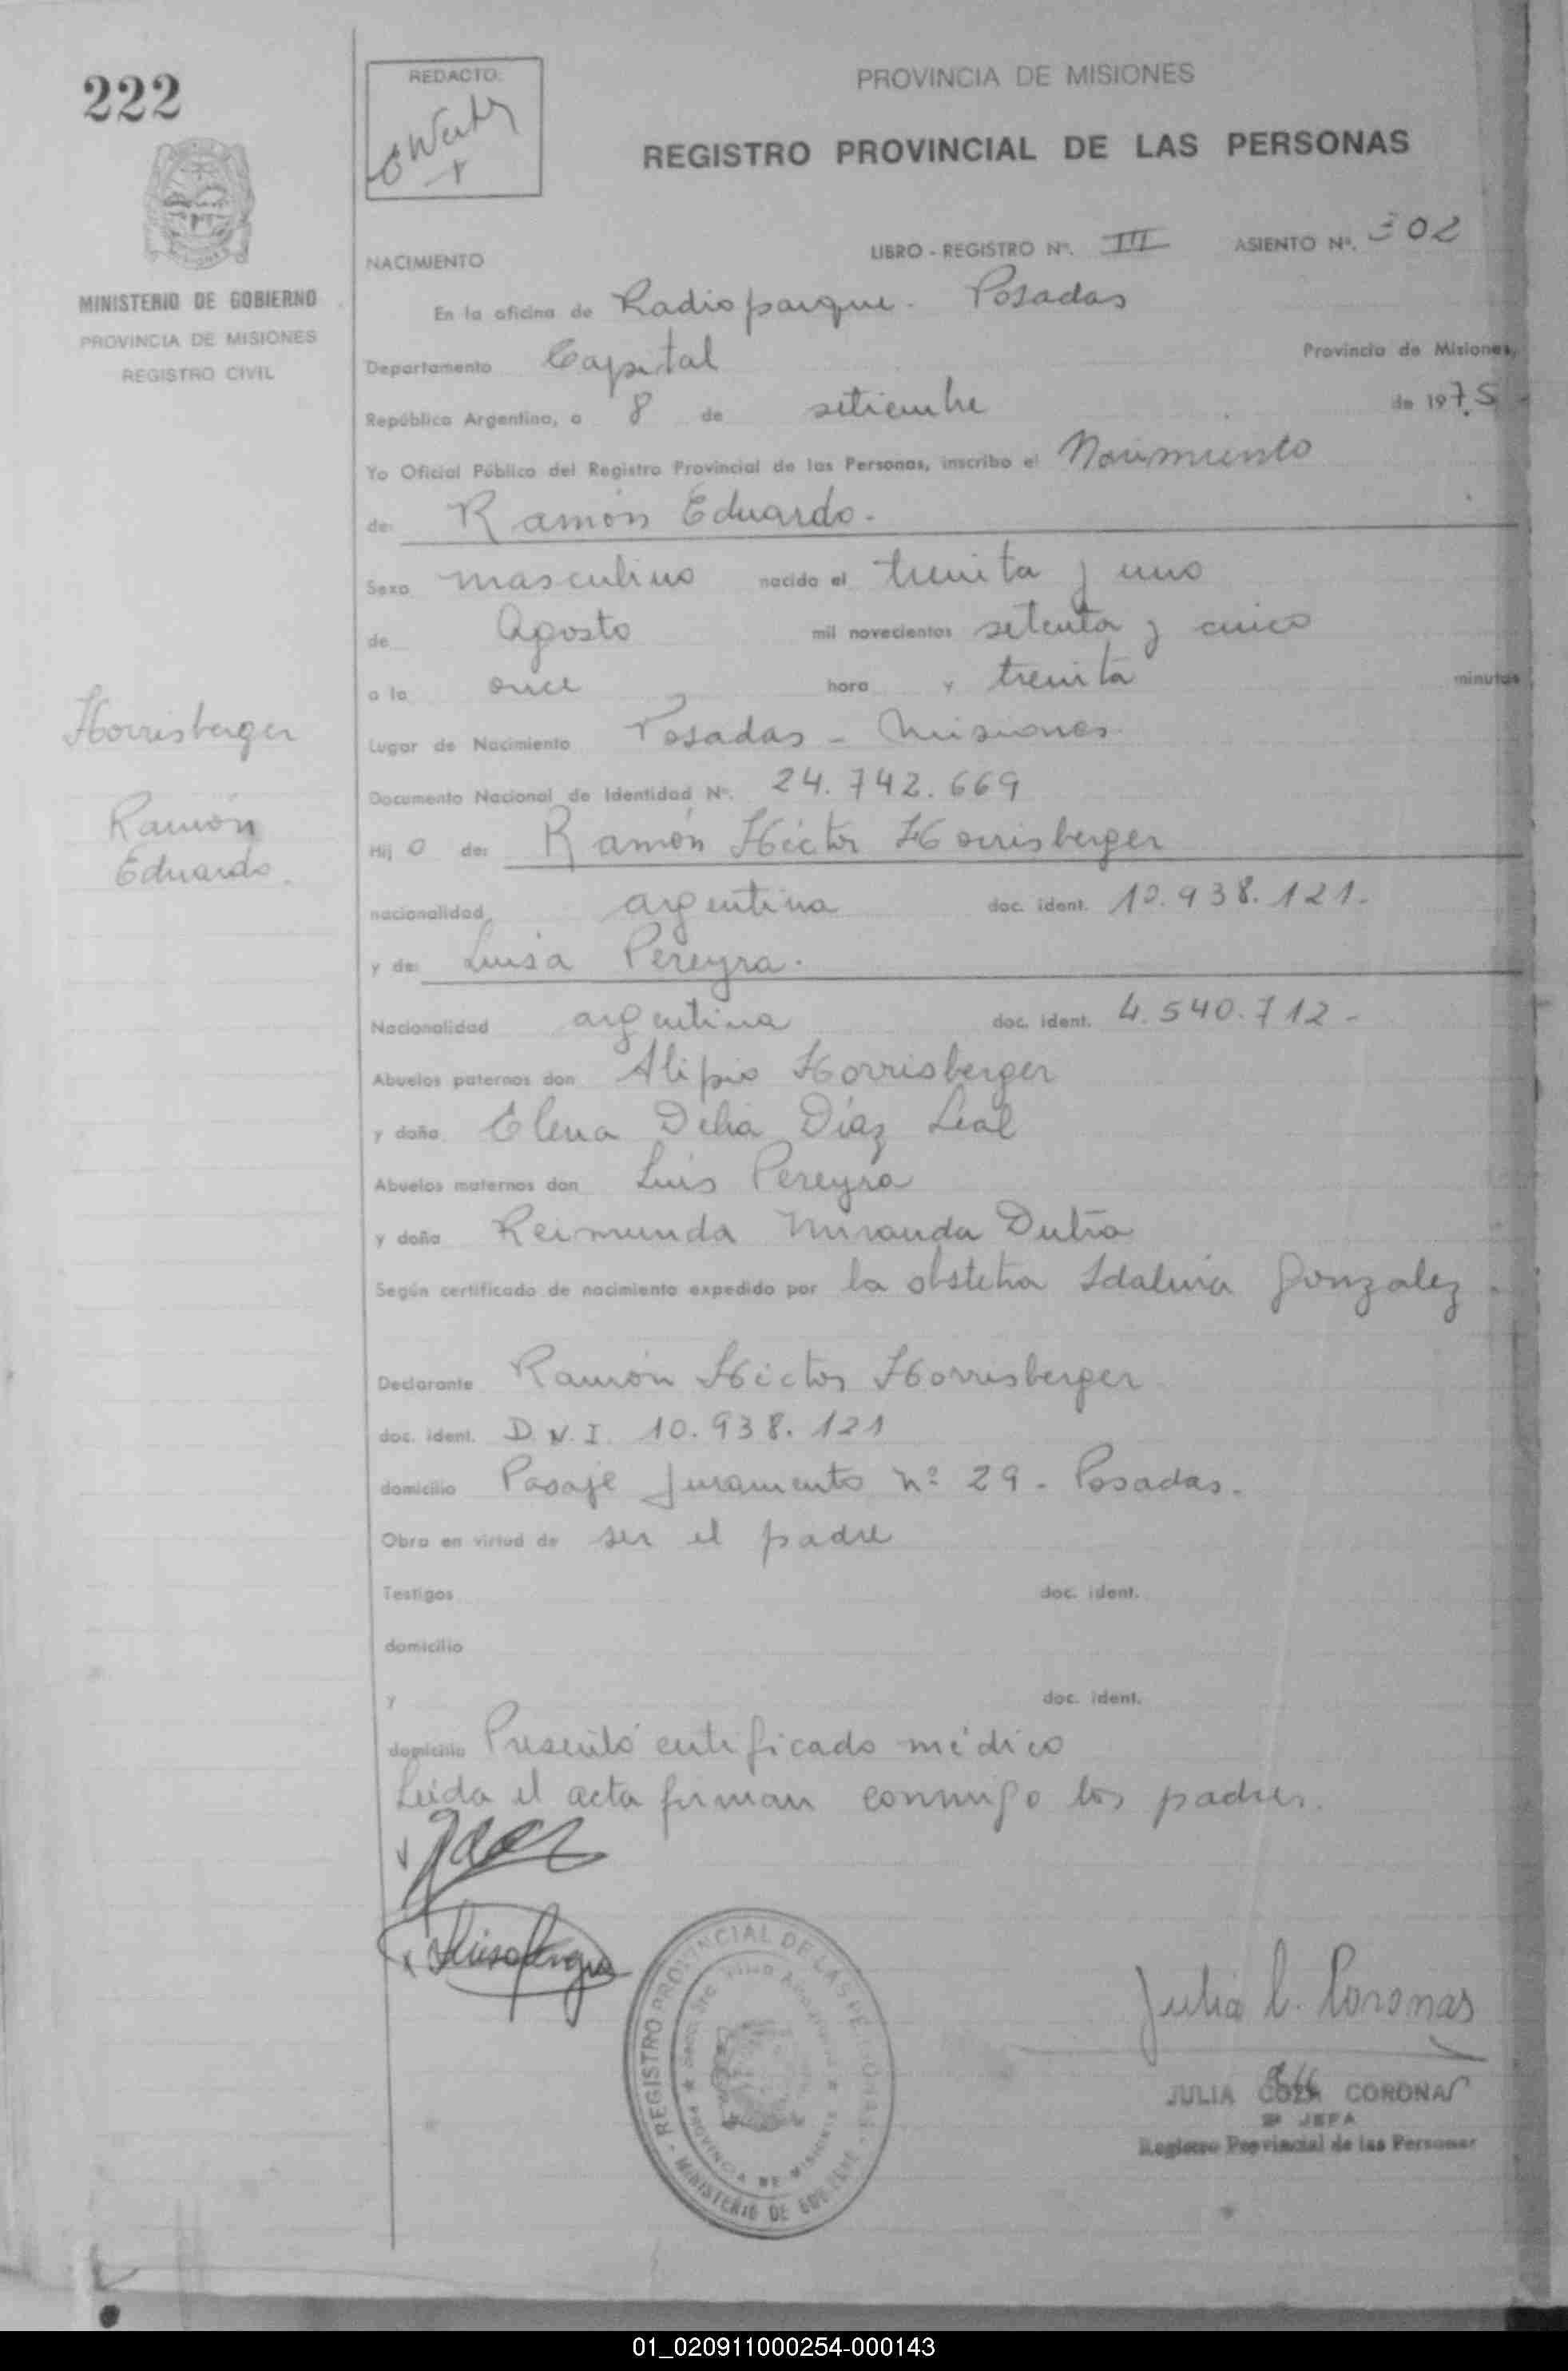 222
REDACTO:
PROVINCIA DE MISIONES
REGISTRO PROVINCIAL DE LAS PERSONAS
MINISTERIO DE GOBIERNO
PROVINCIA DE MISIONES
REGISTRO CIVIL
NACIMIENTO
LIBRO - REGISTRO Nº. III ASIENTO Nº. 302
En la oficina de Radioparque. Posadas
Departamento Capital Provincia de Misiones,
República Argentina, a 8 de setiembre de 1975
Yo Oficial Público del Registro Provincial de las Personas, inscribo el Nacimiento
de: Ramón Eduardo.
Sexo masculino nacido el treinta y uno
de Agosto mil novecientos setenta y cinco
a la once hora y treinta minutos
Lugar de Nacimiento Posadas - Misiones.
Documento Nacional de Identidad Nº. 24.742.669
Horrisberger
Ramón
Eduardo.
Hij o de: Ramón Héctor Horrisberger
nacionalidad argentina doc. ident. 10.938.121.
y de: Luisa Pereyra.
Nacionalidad argentina doc. ident. 4.540.712-
Abuelos paternos don Alipio Horrisberger
y doña Elena Delia Díaz Leal
Abuelos maternos don Luis Pereyra
y doña Reimunda Miranda Dutra
Según certificado de nacimiento expedido por la obstetra Idalina Gonzalez
Declarante Ramón Héctor Horrisberger
doc. ident. D.N.I. 10.938.121
domicilio Pasaje Juramento nº 29 - Posadas.
Obra en virtud de ser el padre
Testigos doc. ident.
domicilio
y doc. ident.
domicilio Presentó certificado médico
Leída el acta firman conmigo los padres.
REGISTRO PROVINCIAL DE LAS PERSONAS
PROVINCIA DE MISIONES
MINISTERIO DE GOBIERNO
Julia C. Coronas
JULIA CORONAS
JEFA
Registro Provincial de las Personas
01_020911000254-000143